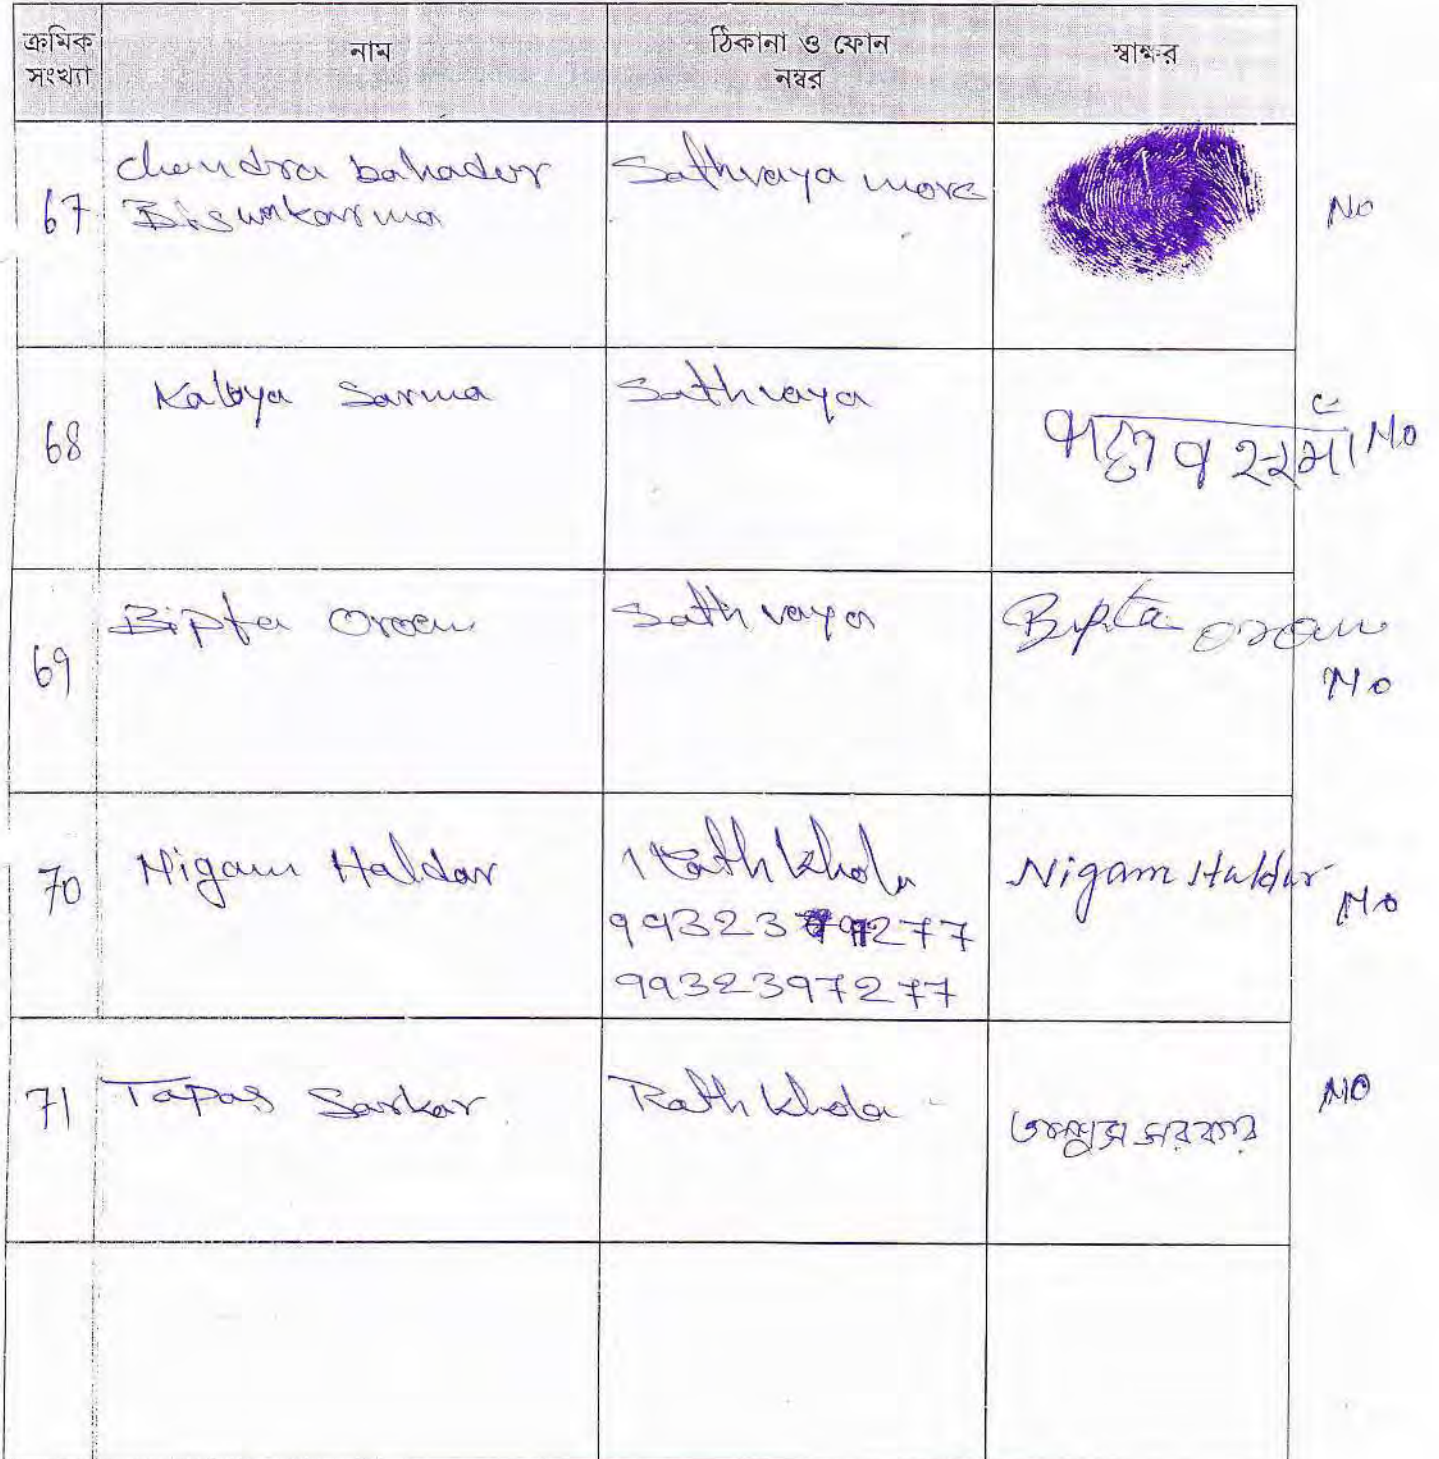 ক্রমিক সংখ্যা
নাম
ঠিকানা ও ফোন নম্বর
স্বাক্ষর
67
Chandra bahadur
Biswakarma
Sathvaya more
No
68
Kabya Sarma
Sathvaya
No
69
Bipta Oroan
Sathvaya
Bipta oraon
No
70
Nigam Haldar
Rathkhola
9932397277
Nigam Haldar
No
71
Tapas Sarkar
Rathkhola
তাপস সরকার
NO